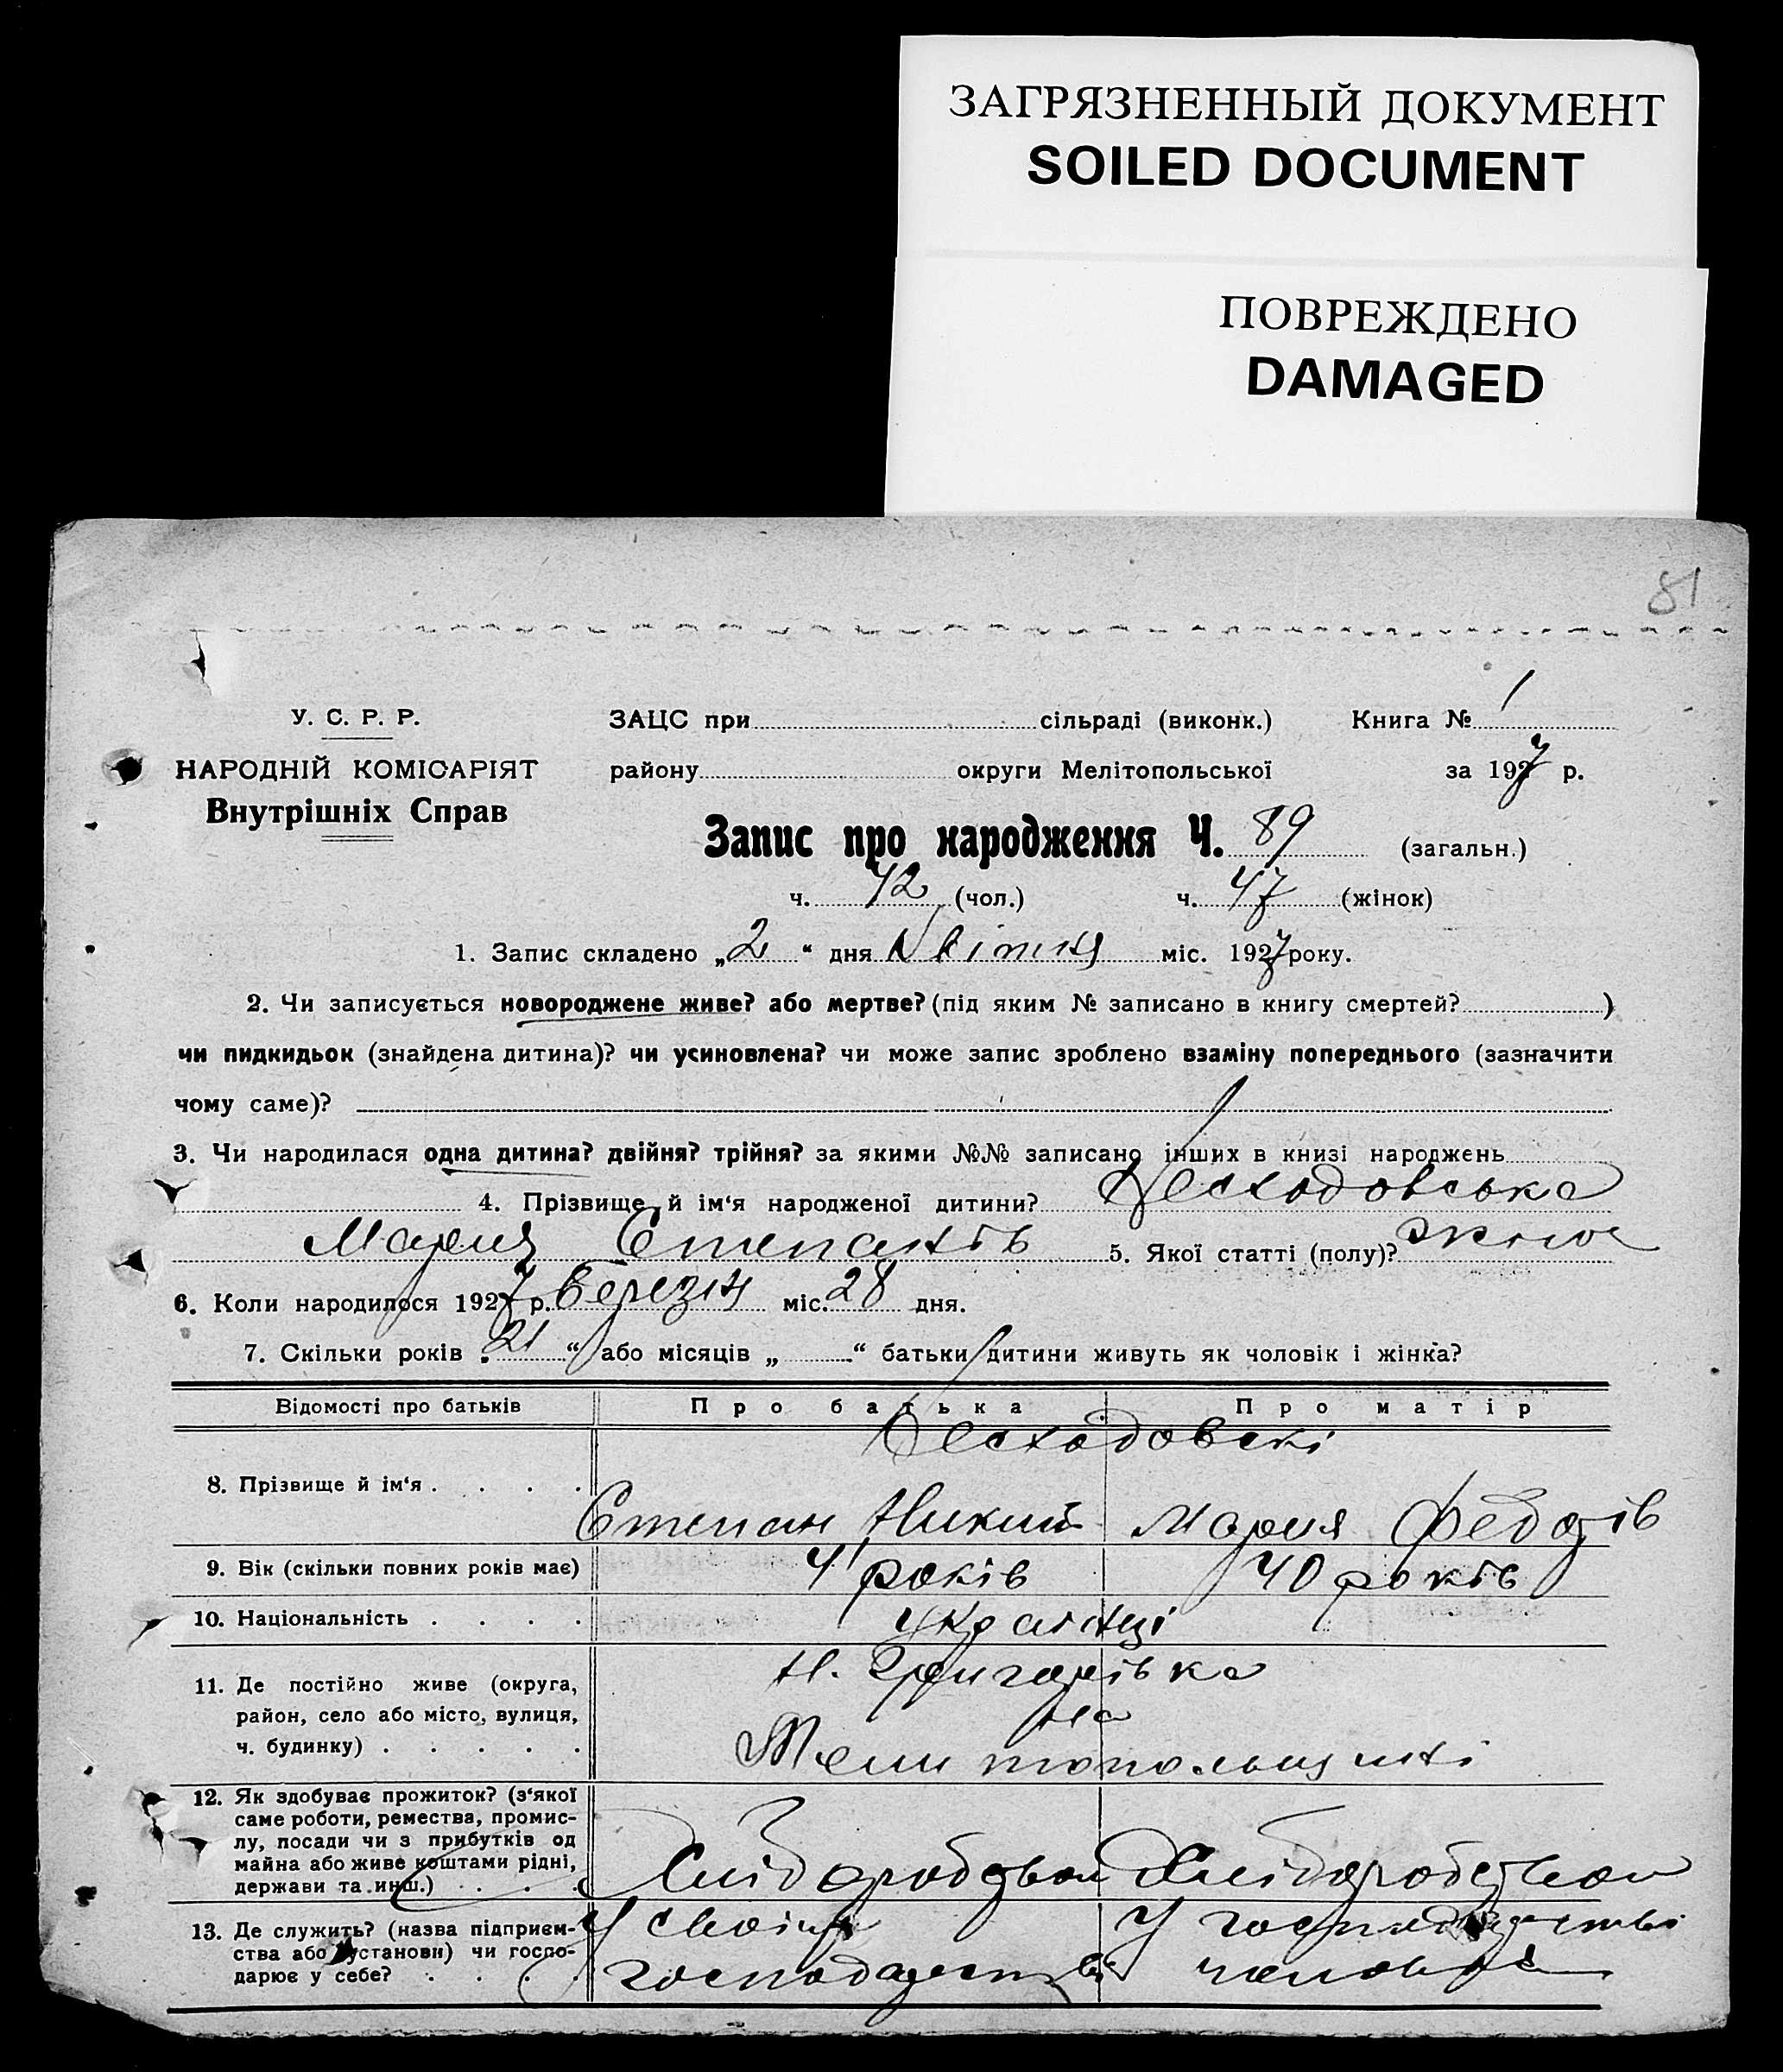 ЗАГРЯЗНЕННЫЙ ДОКУМЕНТ
SOILED DOCUMENT
ПОВРЕЖДЕНО
DAMAGED
81
У. С. Р. Р.
НАРОДНІЙ КОМІСАРІЯТ
Внутрішніх Справ
ЗАЦС при сільраді (виконк.) Книга № 1
району округи Мелітопольської за 1927 р.
Запис про народження Ч. 89 (загальн.)
ч. 42 (чол.) ч. 47 (жінок)
1. Запис складено „2“ дня Квітня міс. 1927 року.
2. Чи записується новороджене живе? або мертве? (під яким № записано в книгу смертей? )
чи пидкидьок (знайдена дитина)? чи усиновлена? чи може запис зроблено взаміну попереднього (зазначити
чому саме)?
3. Чи народилася одна дитина? двійня? трійня? за якими №№ записано інших в книзі народжень
4. Прізвище й ім‘я народженої дитини?
Мария Степанів 5. Якої статті (полу)?
6. Коли народилося 1927 р. Березня міс. 28 дня.
7. Скільки років „21“ або місяців „ “ батьки дитини живуть як чоловік і жінка?
Відомості про батьків Про батька Про матір
8. Прізвище й ім‘я . . . .
Степан Никиш Мария Федотів
9. Вік (скільки повних років має) 41 років 40 років
10. Національність . . . . українці
11. Де постійно живе (округа,
район, село або місто, вулиця,
ч. будинку) . . . . .
Н. Григорівка
на
Мелитопольщині
12. Як здобуває прожиток? (з‘якої
саме роботи, ремества, промис-
лу, посади чи з прибутків од
майна або живе коштами рідні,
держави та инш.) . . .
Хліборобством Хліборобством
13. Де служить? (назва підприєм-
ства або установи) чи госпо-
дарює у себе? . . . .
У своїм У господарстві
господарстві чоловіка